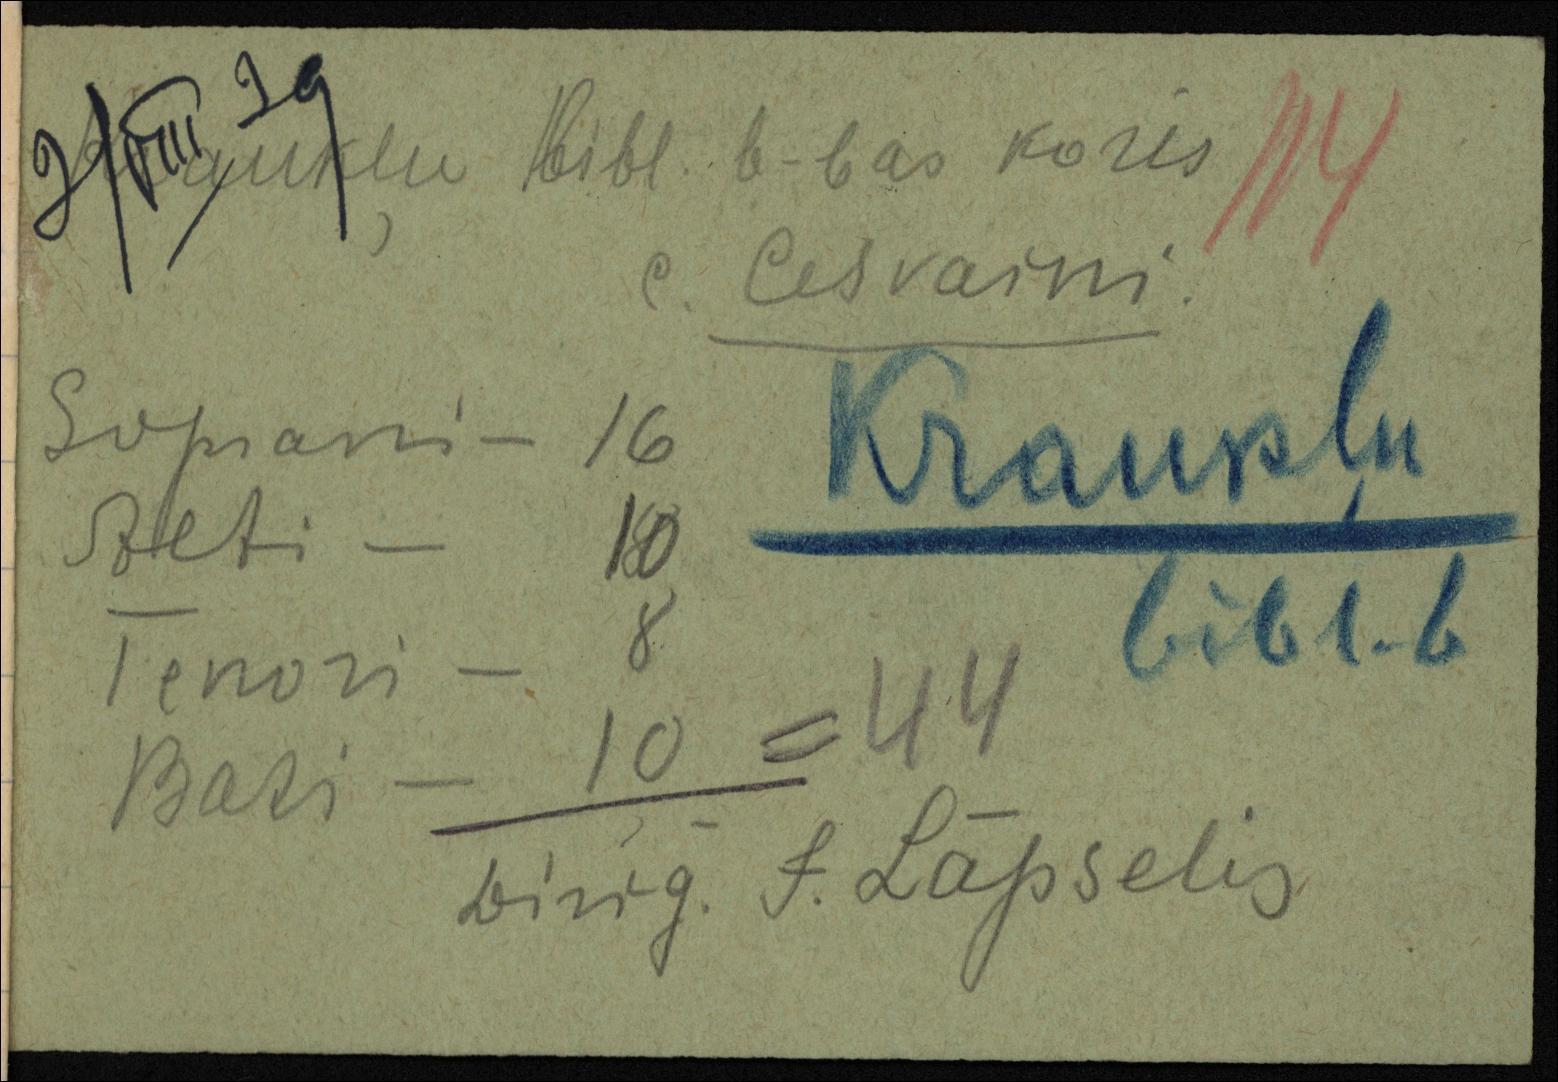 2/VIII 39
Kraukļu Bibl. b-bas koris 114
c. Cesvaini.
Soprani - 16
Alti - 10
Tenori - 8
Basi - 10 = 44
Kraukļu
bibl. b
Diriġ. J. Lāpselis